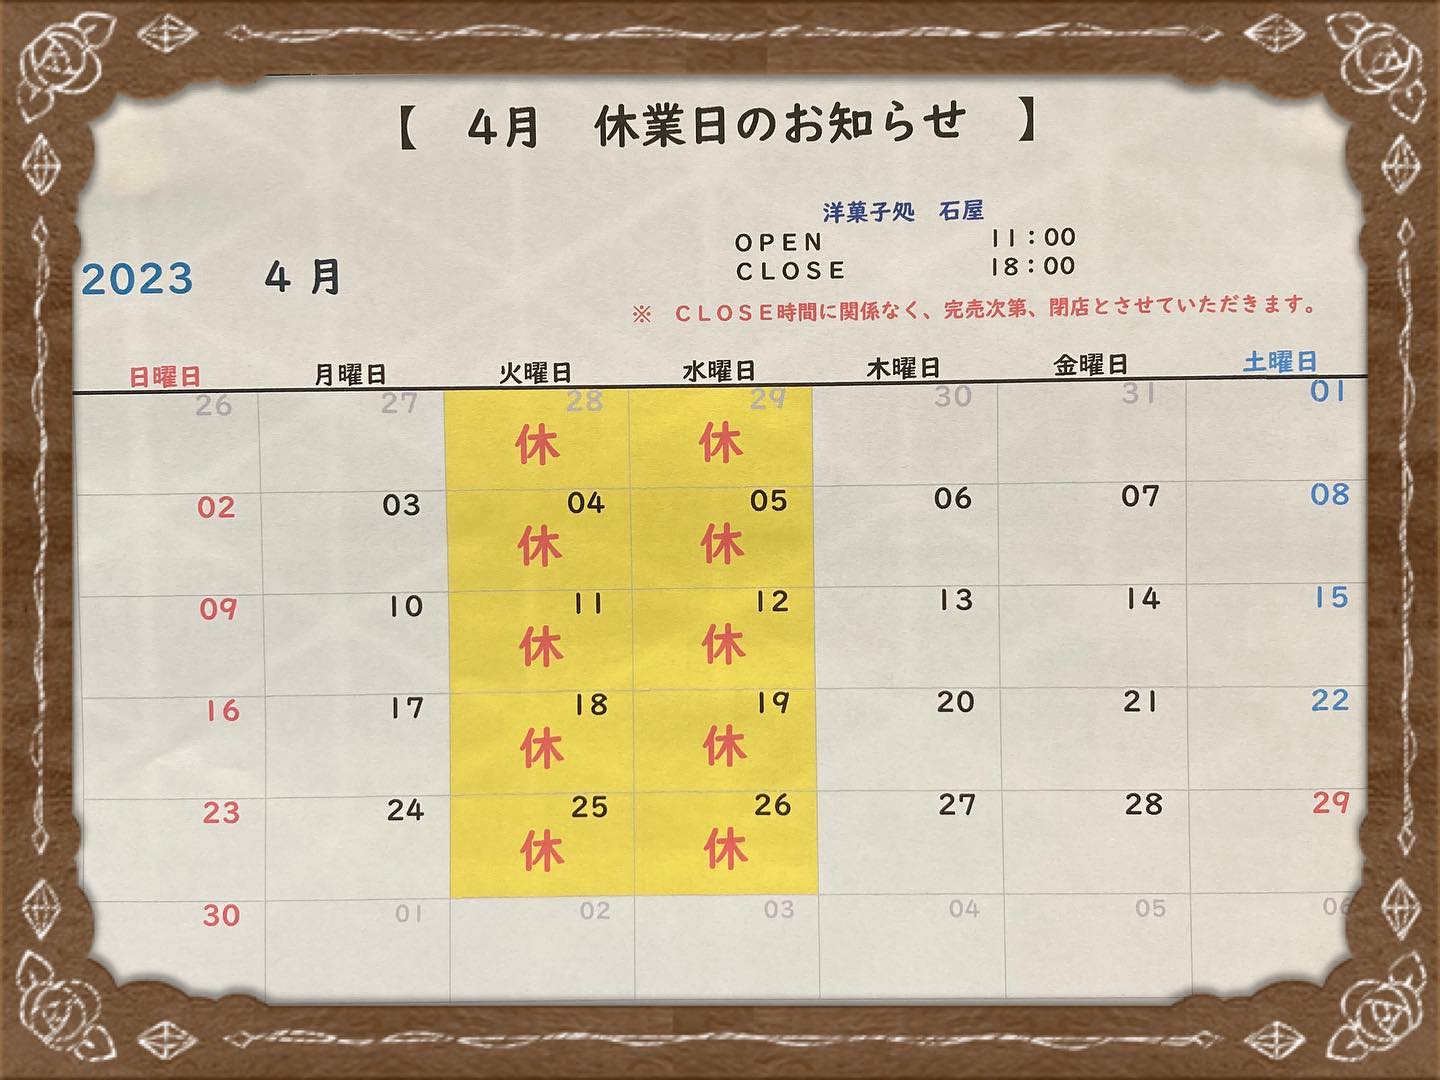 【　4月　休業日のお知らせ　】
洋菓子処　石屋
OPEN 11：00
CLOSE 18：00
2023 4月
※　CLOSE時間に関係なく、完売次第、閉店とさせていただきます。
日曜日 月曜日 火曜日 水曜日 木曜日 金曜日 土曜日
26 27 28 29 30 31 01
休 休
02 03 04 05 06 07 08
休 休
09 10 11 12 13 14 15
休 休
16 17 18 19 20 21 22
休 休
23 24 25 26 27 28 29
休 休
30 01 02 03 04 05 06